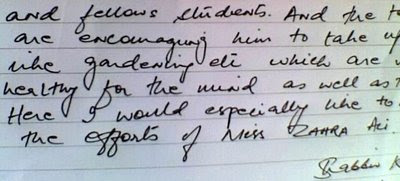 and fellows students. And the t
are encouraging him to take up
like gardening etc which are
healthy for the mind as well as
Here I would especially like to
the efforts of Miss ZAHRA Ali.
Shabbir